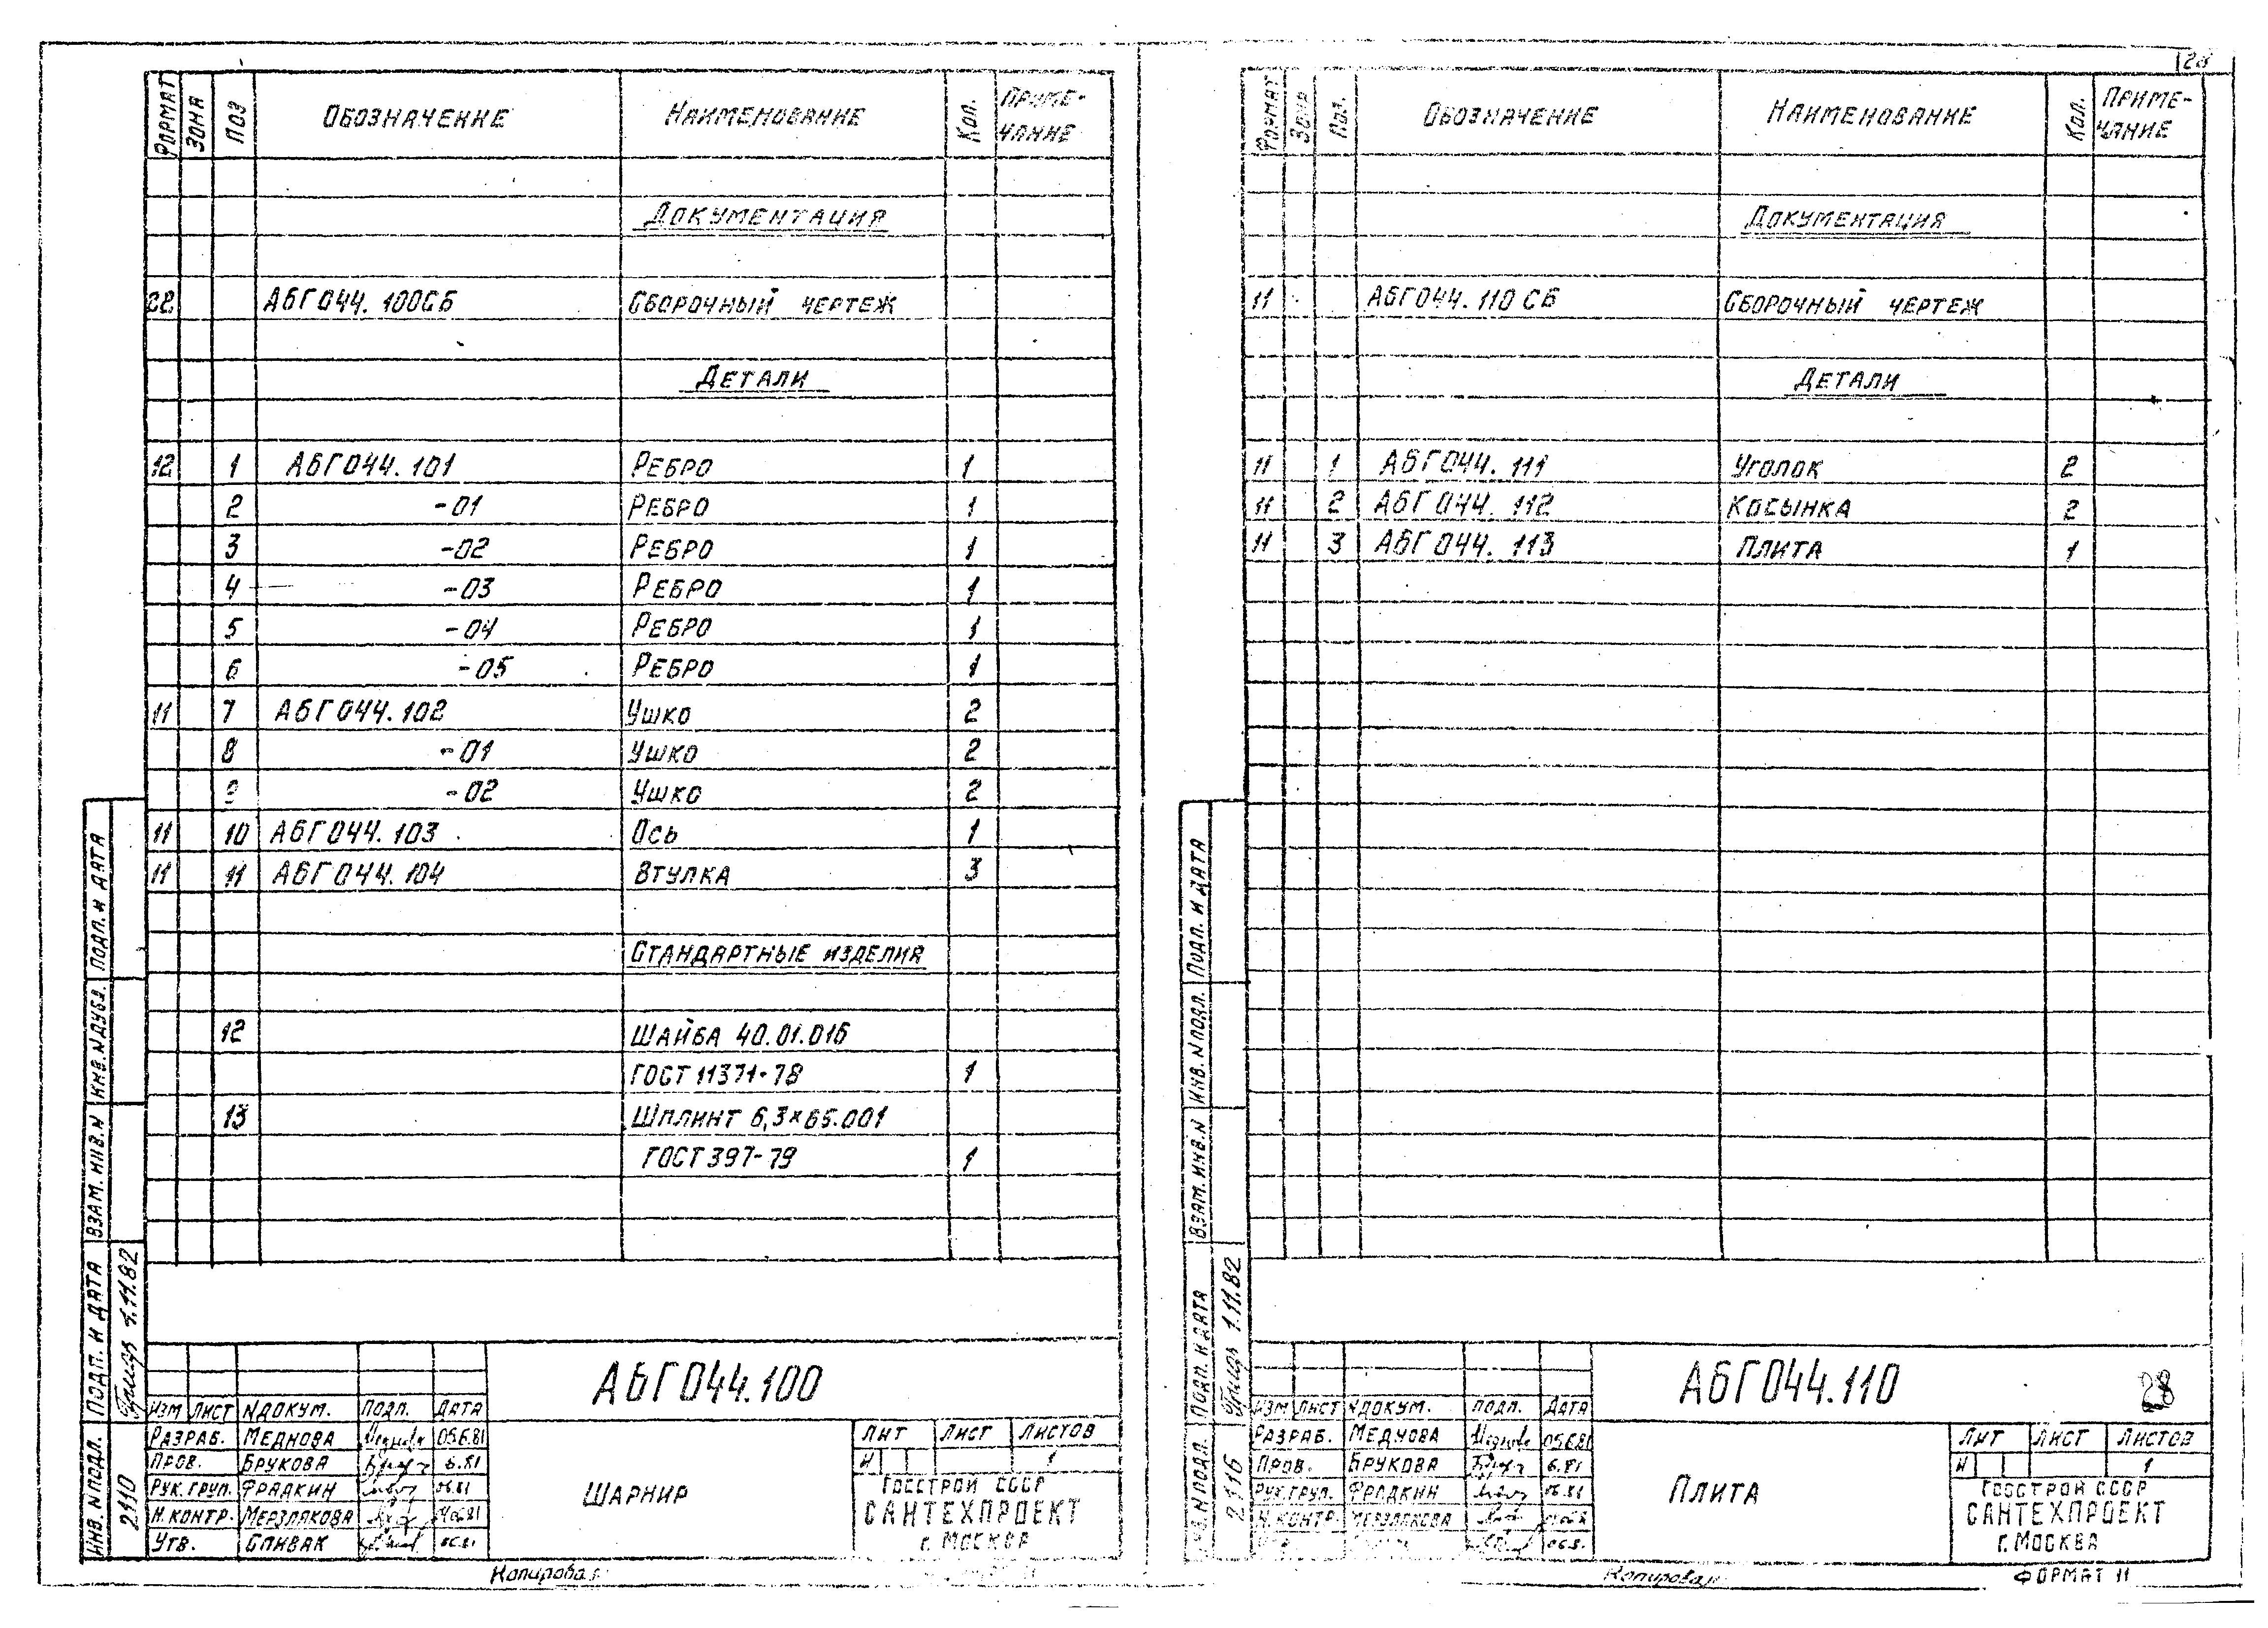 28
ФОРМАТ ЗОНА ПОЗ ОБОЗНАЧЕНИЕ НАИМЕНОВАНИЕ КОЛ. ПРИМЕ-
ЧАНИЕ
ДОКУМЕНТАЦИЯ
22 АБГ044.100СБ СБОРОЧНЫЙ ЧЕРТЕЖ
ДЕТАЛИ
12 1 АБГ044.101 РЕБРО 1
2 -01 РЕБРО 1
3 -02 РЕБРО 1
4 -03 РЕБРО 1
5 -04 РЕБРО 1
6 -05 РЕБРО 1
11 7 АБГ044.102 УШКО 2
8 -01 УШКО 2
9 -02 УШКО 2
11 10 АБГ044.103 ОСЬ 1
11 11 АБГ044.104 ВТУЛКА 3
СТАНДАРТНЫЕ ИЗДЕЛИЯ
12 ШАЙБА 40.01.016
ГОСТ 11371-78 1
13 ШПЛИНТ 6,3×65.001
ГОСТ 397-79 1
ПОДП. И ДАТА
ИНВ.N ДУБЛ.
ВЗАМ. ИНВ. N
ПОДП. И ДАТА 1.11.82
ИНВ. N ПОДЛ. 2110
АБГ044.100
ИЗМ ЛИСТ N ДОКУМ. ПОДП. ДАТА
РАЗРАБ. МЕДНОВА 05.6.81
ПРОВ. БРУКОВА 6.81
РУК.ГРУП. ФРАДКИН 06.81
Н.КОНТР. МЕРЗЛЯКОВА
УТВ. СПИВАК 06.81
ШАРНИР
ЛИТ ЛИСТ ЛИСТОВ
И 1
ГОССТРОЙ СССР
САНТЕХПРОЕКТ
г. МОСКВА
Копировал:
ФОРМАТ ЗОНА ПОЗ. ОБОЗНАЧЕНИЕ НАИМЕНОВАНИЕ КОЛ. ПРИМЕ-
ЧАНИЕ
ДОКУМЕНТАЦИЯ
11 АБГ044.110 СБ СБОРОЧНЫЙ ЧЕРТЕЖ
ДЕТАЛИ
11 1 АБГ044.111 УГОЛОК 2
11 2 АБГ044.112 КОСЫНКА 2
11 3 АБГ044.113 ПЛИТА 1
ПОДП. И ДАТА
ИНВ. N ПОДЛ.
ВЗАМ. ИНВ. N
ПОДП. И ДАТА 1.11.82
ИНВ. N ПОДЛ. 2116
АБГ044.110
28
ИЗМ ЛИСТ N ДОКУМ. ПОДП. ДАТА
РАЗРАБ. МЕДНОВА 05.6.81
ПРОВ. БРУКОВА 6.81
РУК.ГРУП. ФРАДКИН 06.81
Н.КОНТР. МЕРЗЛЯКОВА
ПЛИТА
ЛИТ ЛИСТ ЛИСТОВ
И 1
ГОССТРОЙ СССР
САНТЕХПРОЕКТ
г. МОСКВА
Копировал:
ФОРМАТ 11